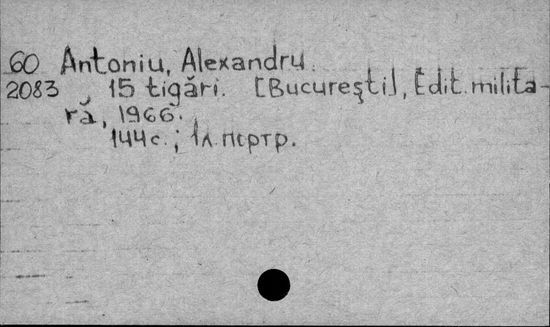 60 Antoniu, Alexandru.
2083 15 tigări. [Bucureşti], Edit. milita-
ră, 1966.
144 с.; 1 л. портр.